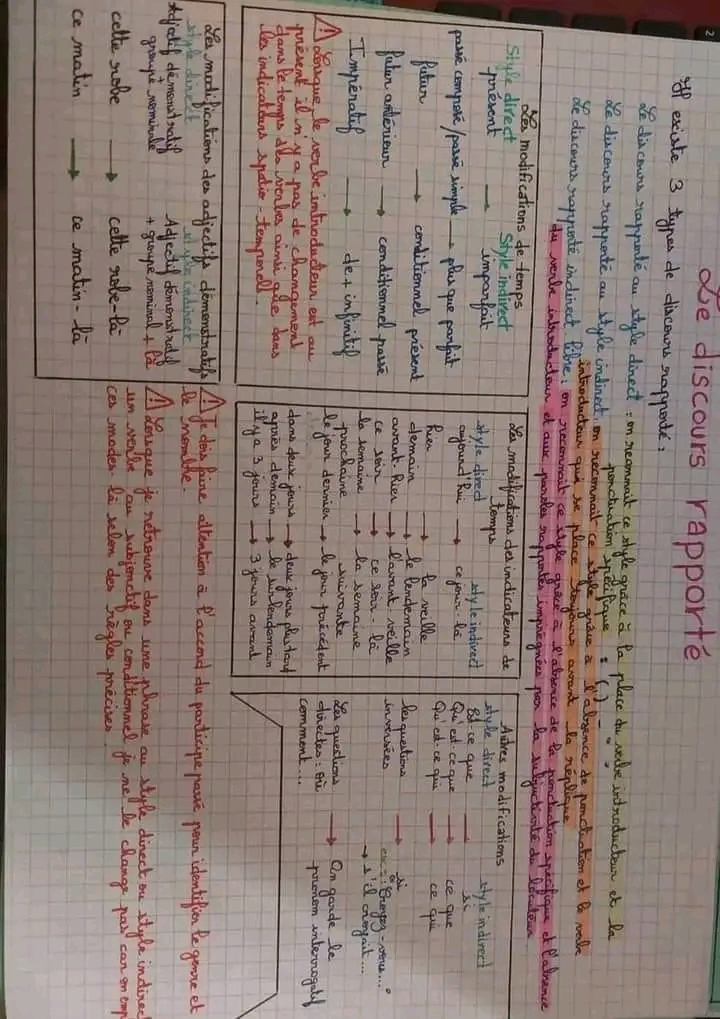 Le discours rapporté
Il existe 3 types de discours rapporté :
Le discours rapporté au style direct : on reconnait ce style grâce à la place du verbe introducteur et la
ponctuation spécifique : ( ) - " "
Le discours rapporté au style indirect : on reconnait ce style grâce à l'absence de ponctuation et le verbe
introducteur qui se place toujours avant la réplique
Le discours rapporté indirect libre : on reconnait ce style grâce à l'absence de la ponctuation spécifique et l'absence
du verbe introducteur et aux paroles rapportés imprégnées par la subjectivité du locuteur
Les modifications de temps
Style direct Style indirect
présent → imparfait
passé composé/passé simple → plus que parfait
futur → conditionnel présent
futur antérieur → conditionnel passé
Impératif → de + infinitif
⚠ Lorsque le verbe introducteur est au
présent il n'y a pas de changement
dans le temps des verbes ainsi que dans
les indicateurs spatio-temporels.
Les modifications des indicateurs de
temps
style direct style indirect
aujourd'hui → ce jour-là
hier → la veille
demain → le lendemain
avant-hier → l'avant-veille
ce soir → ce soir-là
la semaine → la semaine
prochaine suivante
le jour dernier → le jour précédent
dans deux jours → deux jours plus tard
après demain → le surlendemain
il y a 3 jours → 3 jours avant
Autres modifications
style direct style indirect
Est-ce que → si
Qu'est-ce que → ce que
Qu'est-ce qui → ce qui
les questions → si
inversées ex : Croyez-vous...?
→ s'il croyait...
Les questions → On garde le
directes : où pronom interrogatif
comment...
Les modifications des adjectifs démonstratifs
style direct style indirect
Adjectif démonstratif Adjectif démonstratif
+ groupe nominale + groupe nominal + là
cette robe → cette robe-là
ce matin → ce matin-là
⚠ Je dois faire attention à l'accord du participe passé pour identifier le genre et
le nombre.
⚠ Lorsque je retrouve dans une phrase au style direct ou style indirect
un verbe au subjonctif ou conditionnel je ne le change pas car on emp
ces modes-là selon des règles précises.